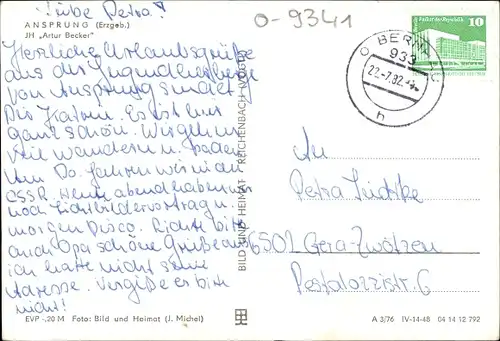 Liebe Petra!
O-9341
ANSPRUNG (Erzgeb.)
JH „Artur Becker"
Herzliche Urlaubsgrüße
aus der Jugendherberge
von Ansprung sendet
Dir Katrin. Es ist hier
ganz schön. Wir gehen
viel wandern u. baden.
Am Do. fahren wir in die
CSSR. Heute abend haben wir
noch Lichtbildervortrag u.
morgen Disco. Richte bitte
auch Opa schöne Grüße aus
ich hatte nicht seine
Adresse. Vergiß es bitte
nicht!
EVP -,20 M Foto: Bild und Heimat (J. Michel)
BILD UND HEIMAT REICHENBACH
Palast der Republik 10
BERN
933
22.-7.82
h
An
Petra
6502 Gera-Zwötzen
Pestalozzistr. 6
A 3/76 IV-14-48 04 14 12 792